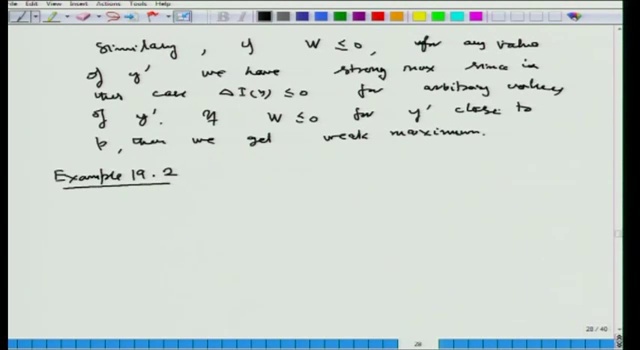 File View Insert Actions Tools Help
Similary, if W ≤ 0, for any value
of y' we have strong max since in
this case ΔI(y) ≤ 0 for arbitrary values
of y'. If W ≤ 0 for y' close to
p, then we get weak maximum.
Example 19.2
28 / 40
28